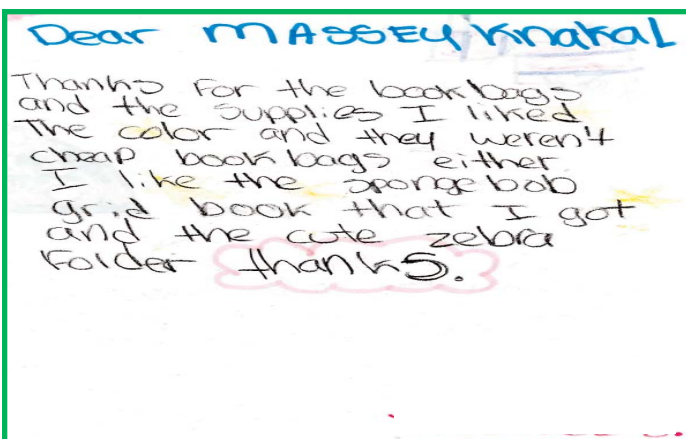 Dear MASSEY Knakal
Thanks For the book bags
and the supplies I liked
The color and they weren't
cheap book bags either.
I like the spongebob
grid book that I got
and the cute zebra
Folder thanks.